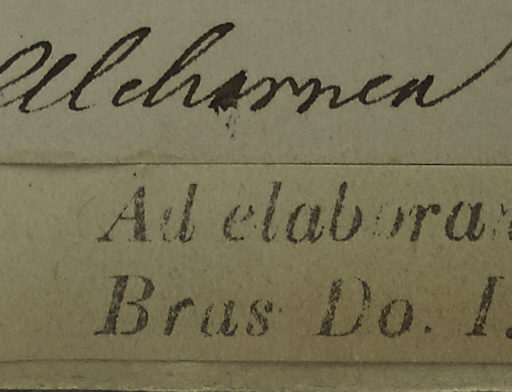 Alchornea
Ad elabora
Bras Do. I.